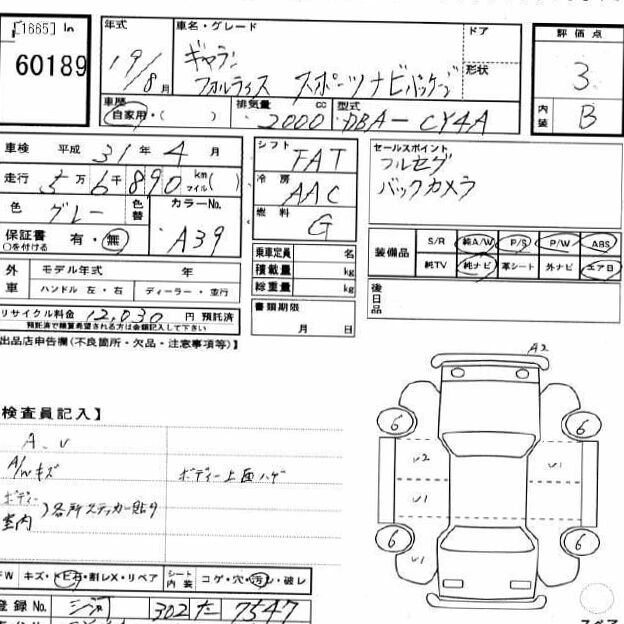 [1665] In
60189
年式
19/8月
車名・グレード
ギャラン
フォルティス スポーツナビパッケージ
ドア
形状
評価点
3
内装
B
車歴
自家用・( )
排気量 cc
2000
型式
DBA-CY4A
車検 平成 31年 4月
走行 5万6千890 km マイル( )
色 グレー
色替
カラーNo.
A39
保証書 有・無
○を付ける
外車
モデル年式 年
ハンドル 左・右 ディーラー・並行
リサイクル料金 12,030 円 預託済
預託済で精算希望される方は金額記入して下さい
シフト
FAT
冷房
AAC
燃料
G
乗車定員 名
積載量 kg
総重量 kg
書類期限
月 日
セールスポイント
フルセグ
バックカメラ
装備品
S/R 純A/W P/S P/W ABS
純TV 純ナビ 革シート 外ナビ エアB
後日品
出品店申告欄(不良箇所・欠品・注意事項等)】
検査員記入】
A、U
A/Wキズ
ボディー上面ハゲ
ボディー
室内
)各所ステッカー貼り
A2
6
6
U2
U1
U1
U1
6
6
FW キズ・トビ石・割レX・リペア
シート内装
コゲ・穴・汚レ・破レ
登録No.
302 た 7547
スペア